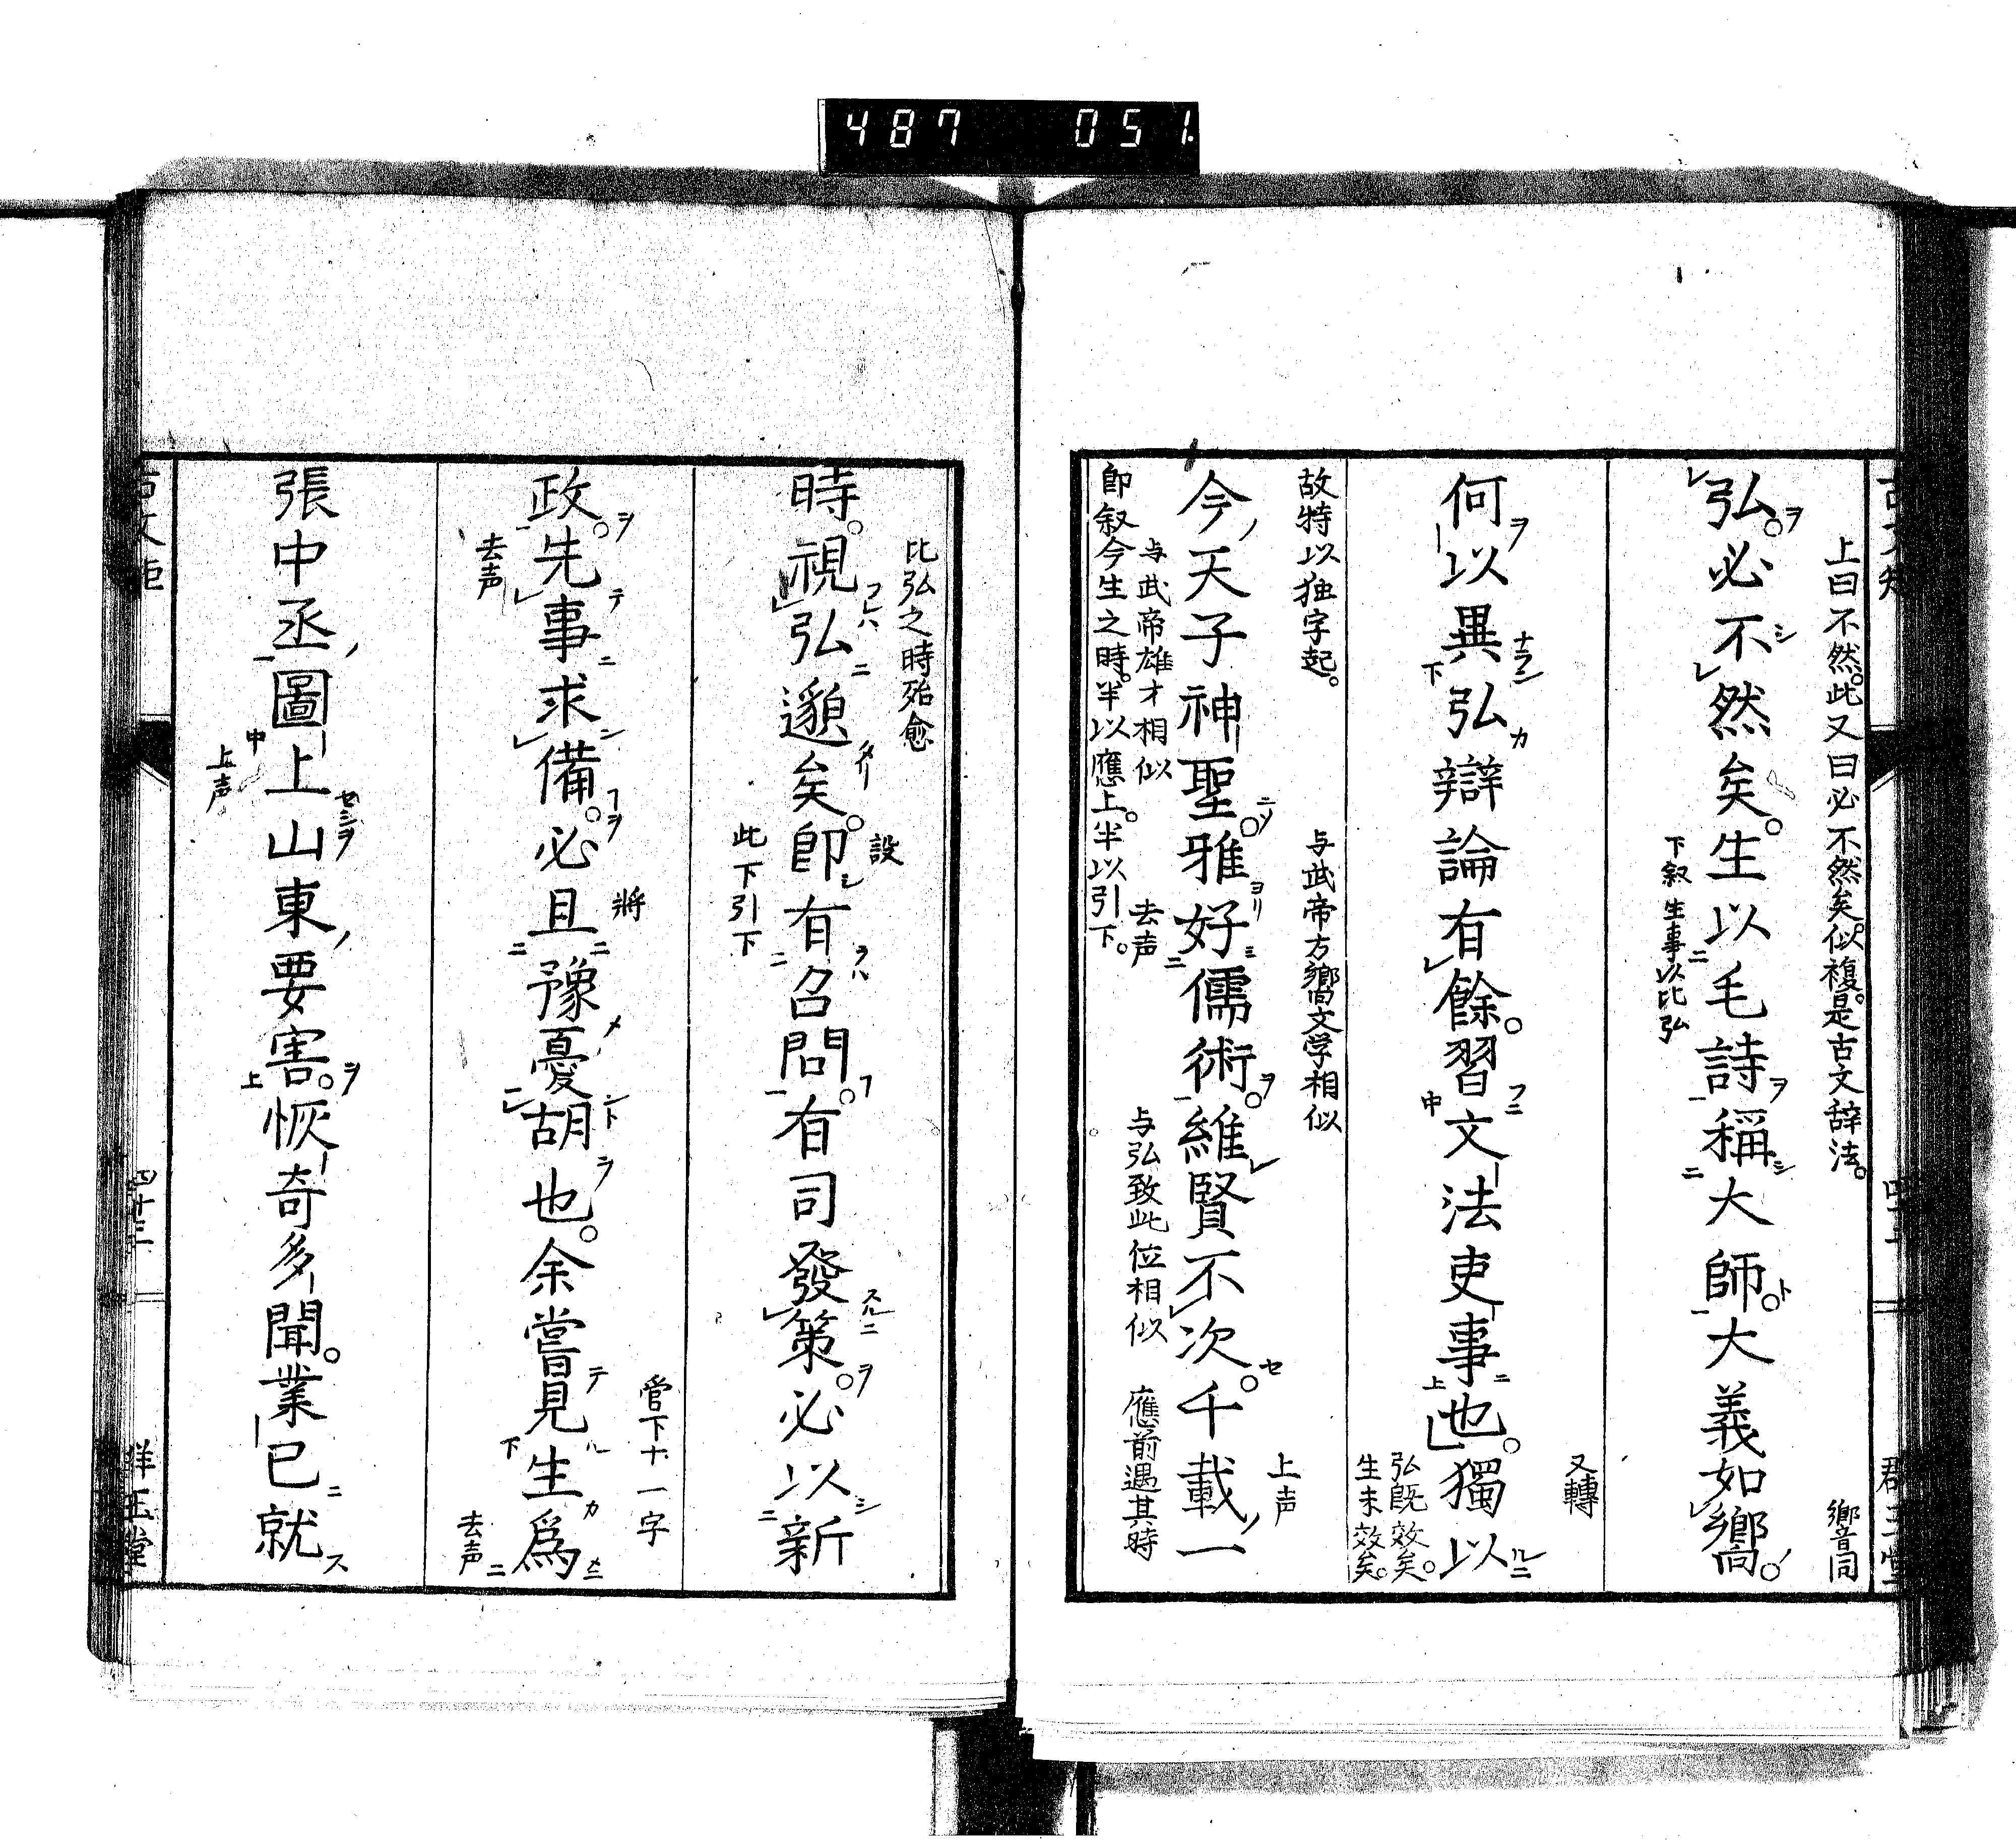 487 051.
上曰不然。此又曰必不然矣。似複。是古文辞法。
響音同
弘。必不然矣。生以毛詩稱大師。大義如嚮。
下叙生事以比弘
又轉
何以異弘辯論有餘。習文法吏事也。獨以
弘既效矣。
生未效矣。
故特以独字起。
与武帝方嚮文学相似
上声
今天子神聖。雅好儒術。維賢不次。千載一
与武帝雄才相似
去声
与弘致此位相似
應前遇其時
即叙今生之時。半以應上。半以引下。
比弘之時殆愈
設
時。視弘邈矣。即有召問。有司發策。必以新
此下引下
將
管下十一字
政。先事求備。必且豫憂胡也。余嘗見生爲
去声
去声
張中丞圖上山東要害。恢奇多聞。業已就
上声
四十三